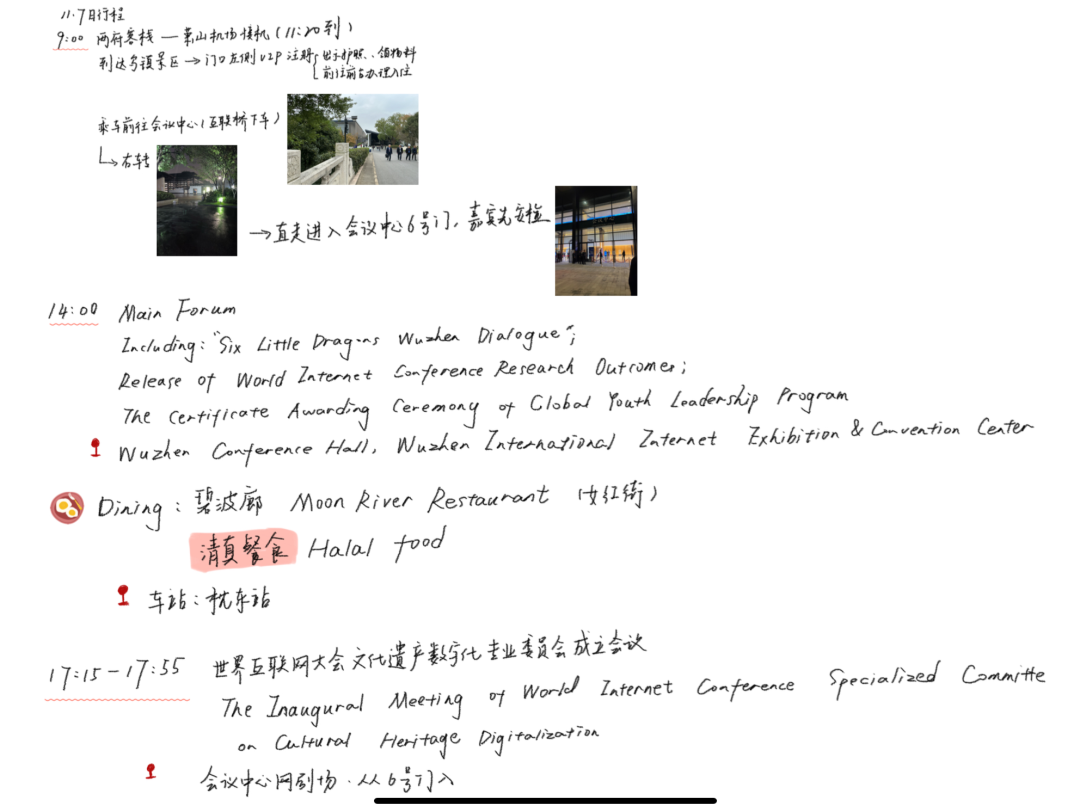 11.7日行程
9:00 两府客栈 — 萧山机场接机(11:20到)
到达乌镇景区 → 门口左侧VIP注册 出示护照、领物料
前往前台办理入住
乘车前往会议中心(互联桥下车)
↳ 右转
→ 直走进入会议中心6号门,嘉宾先安检
14:00 Main Forum
Including: "Six Little Dragons Wuzhen Dialogue";
Release of World Internet Conference Research Outcomes;
The Certificate Awarding Ceremony of Global Youth Leadership Program
Wuzhen Conference Hall, Wuzhen International Internet Exhibition & Convention Center
Dining: 碧波廊 Moon River Restaurant (女红街)
清真餐食 Halal food
车站:东站
17:15-17:55 世界互联网大会文化遗产数字化专业委员会成立会议
The Inaugural Meeting of World Internet Conference Specialized Committe
on Cultural Heritage Digitalization
会议中心网剧场.从6号门入